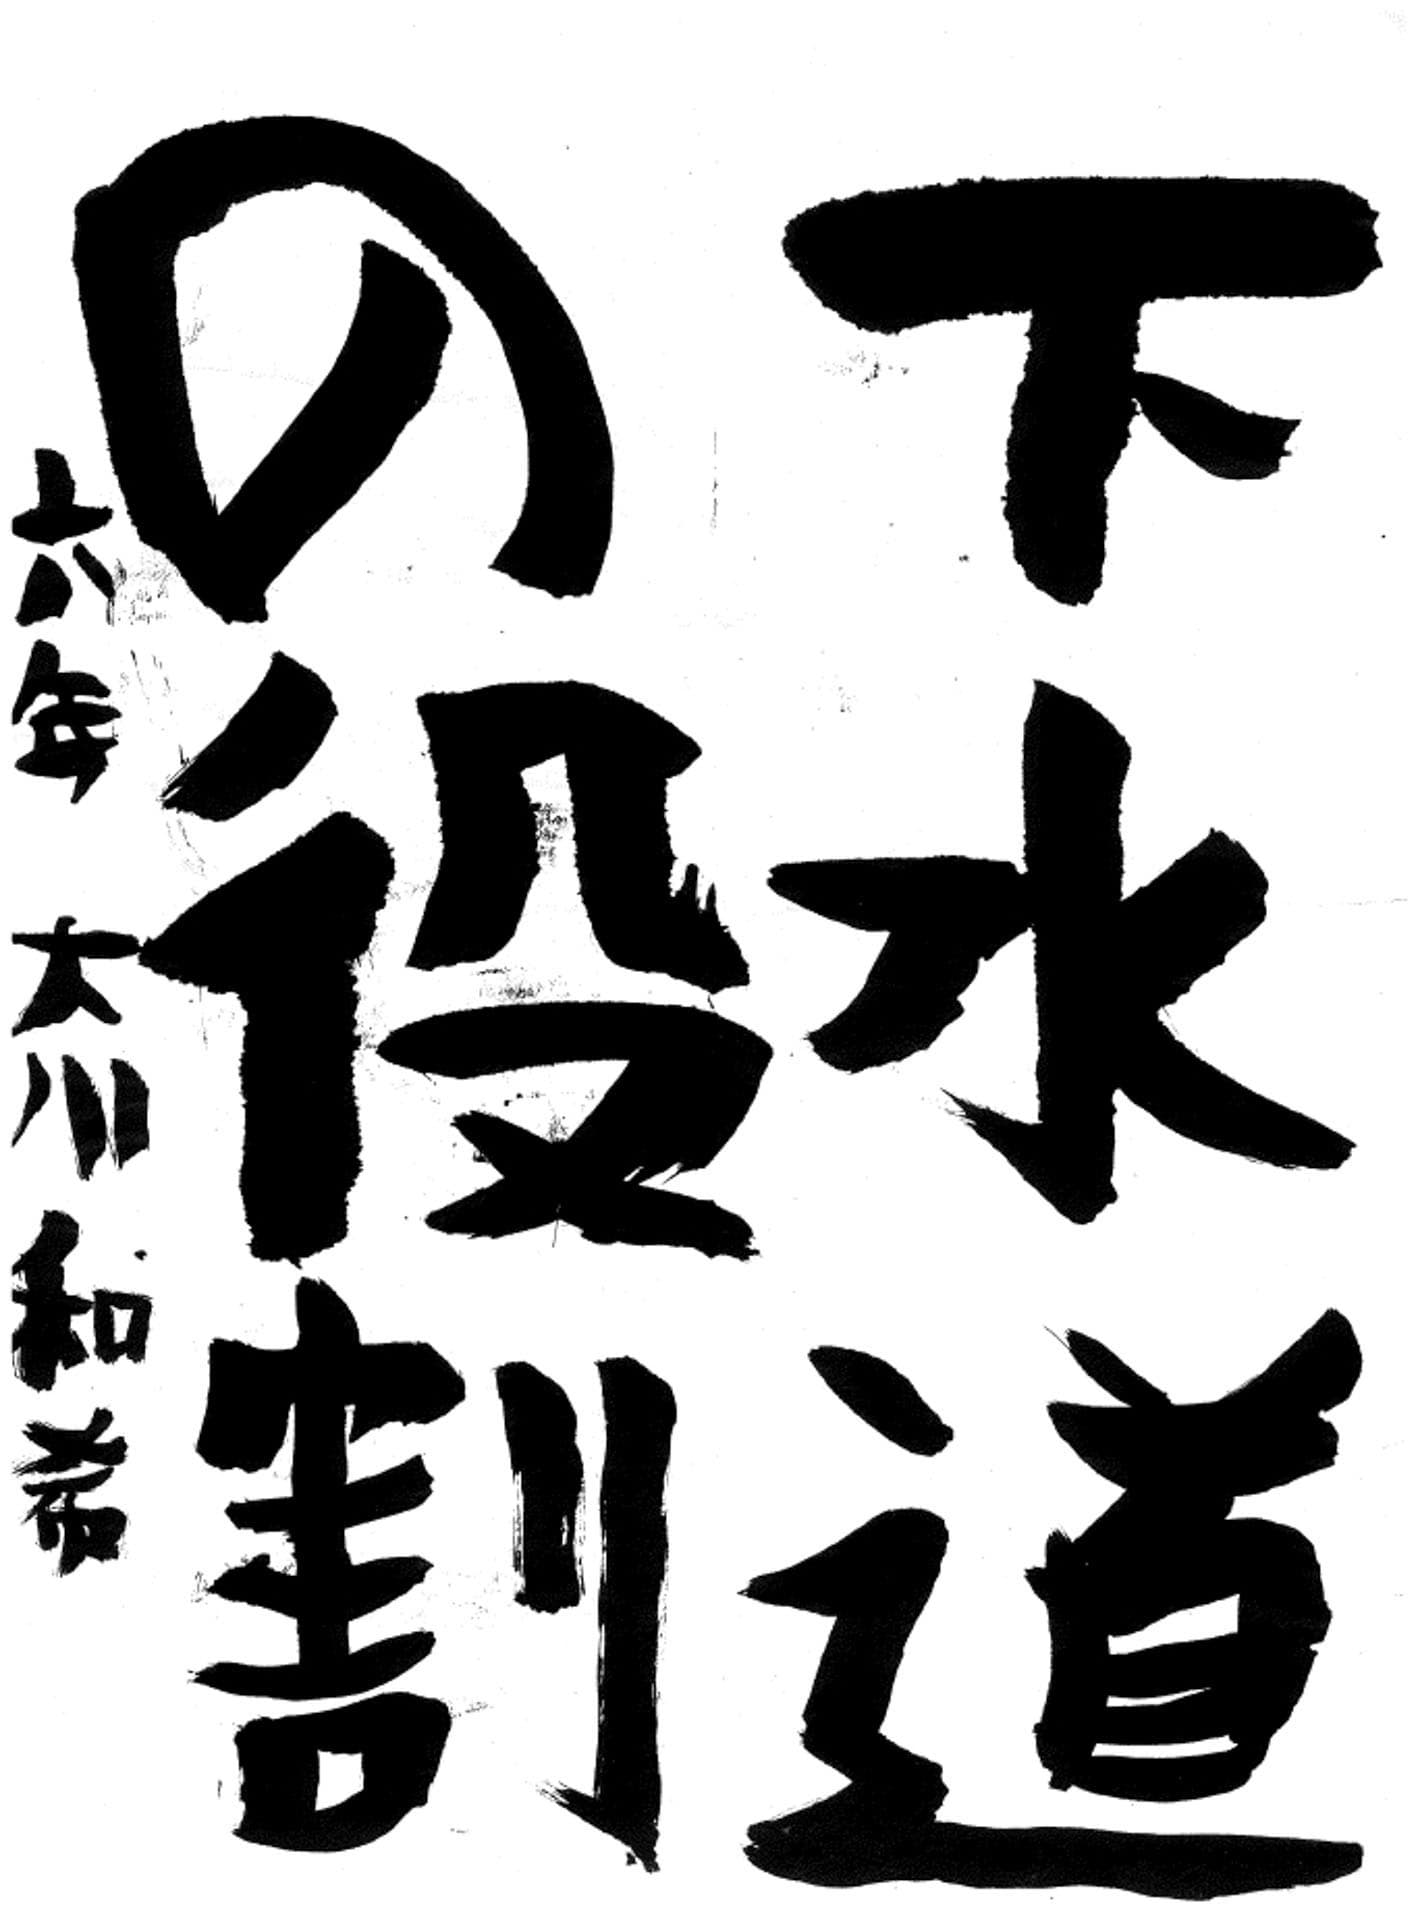 下水道
の役割
六年 大川 和希